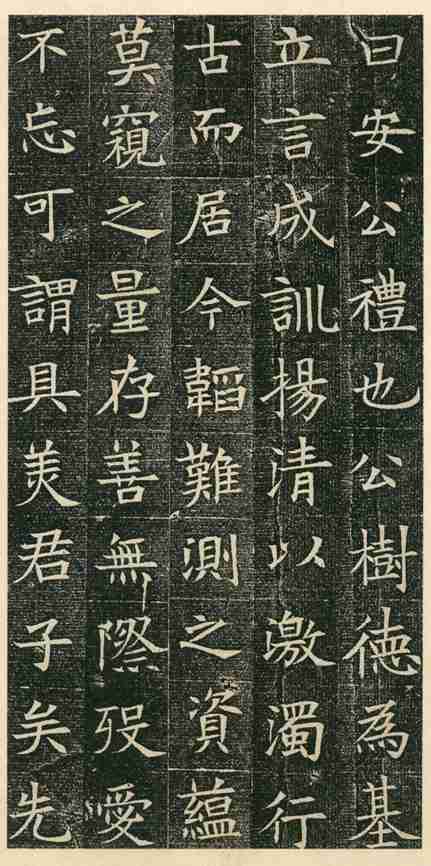 曰安公禮也公樹德為基
立言成訓揚清以激濁行
古而居今韜難測之資蘊
莫窺之量存善無際歿愛
不忘可謂具美君子矣先